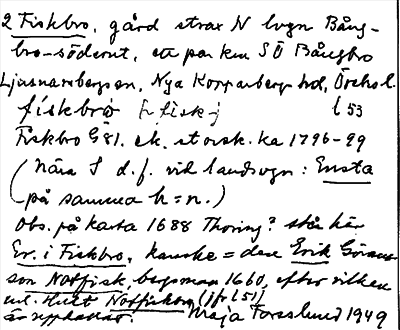 2 Fiskbro, gård strax N lvgn Bång-
bro-söderut, ett par km SÖ Bångbro
Ljusnarsbergs sn, Nya Kopparbergs hd, Örebro l.
fiskbrò [r fisk-] l 53
Fiskbro G 81. ek. storsk. ka 1796-99
(Nära S d.f. vid landsvgn: Ensta
(på samma h = n.)
Obs. på karta 1688 Thoring? står här
Er. i Fiskbro, kanske = den Erik Görans-
son Notfisk, bergsman 1660, efter vilken
enl. Hult Notfisken (jfr l 51)
är uppkallat. Maja Forsslund 1949